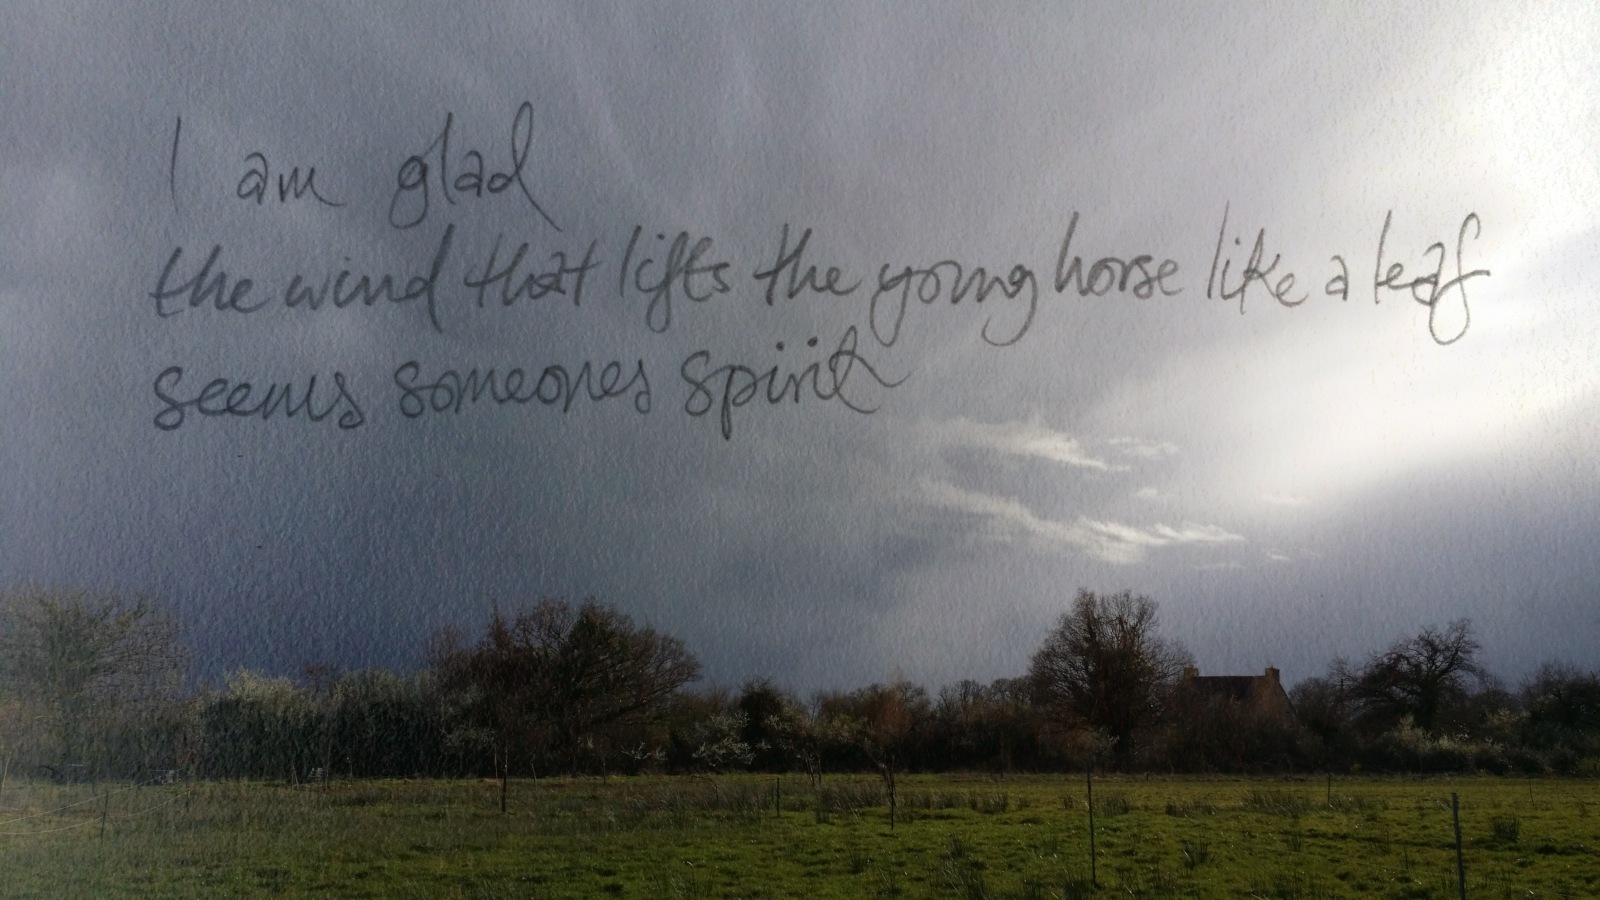 I am glad
the wind that lifts the young horse like a leaf
seems someones spirit